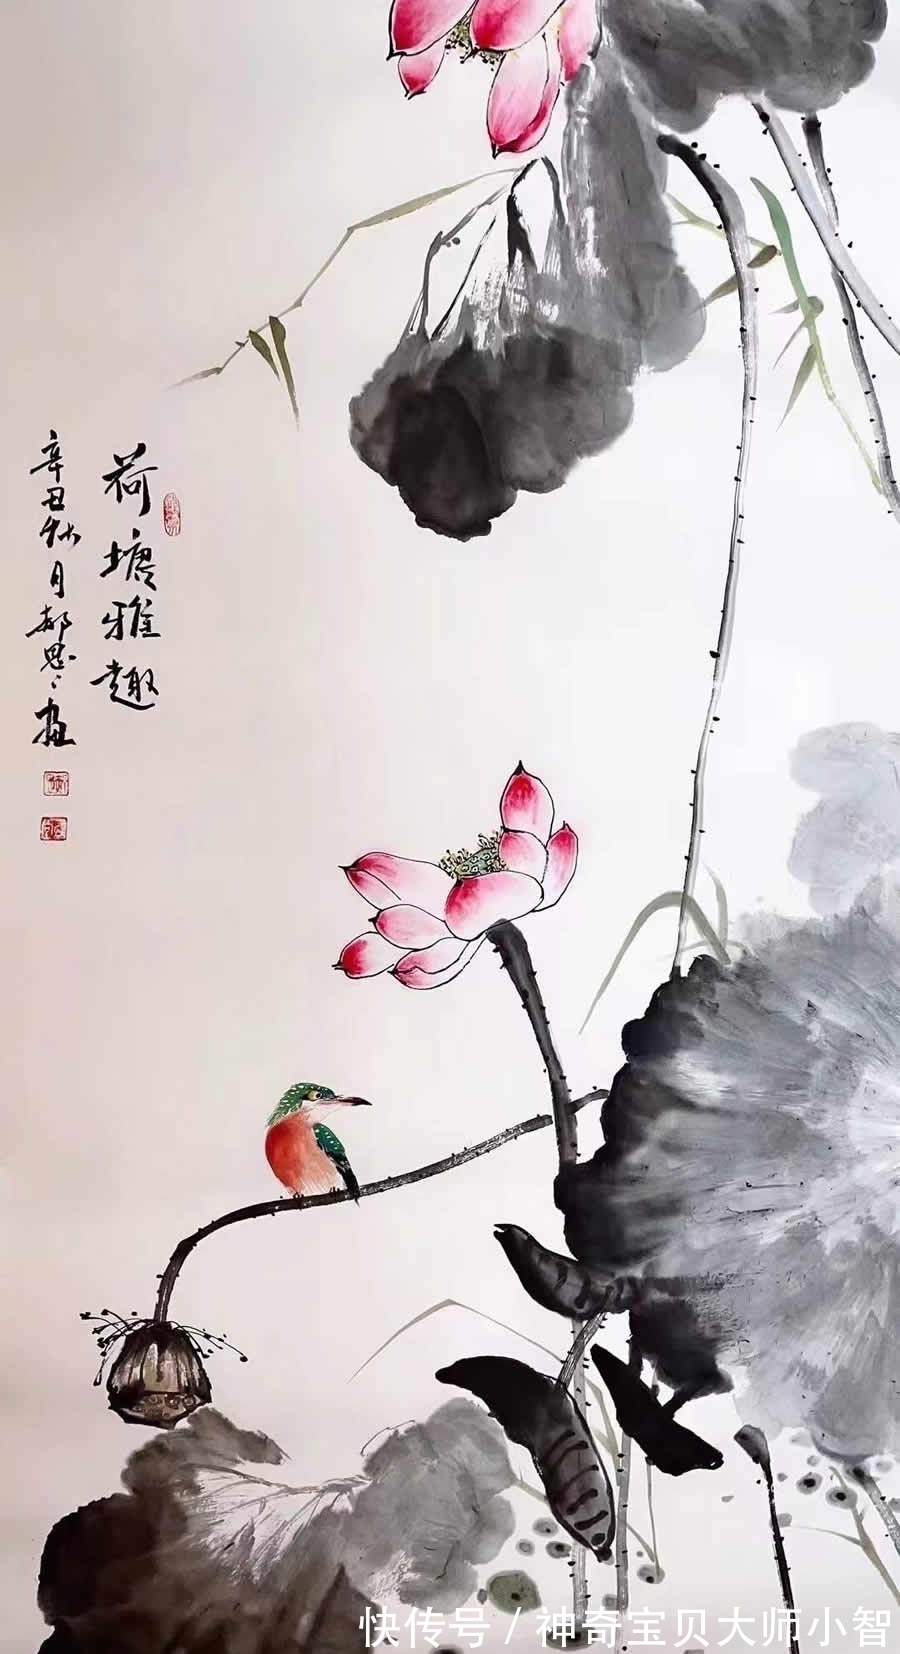 荷塘雅趣
辛丑秋月郝思思画
快传号/神奇宝贝大师小智